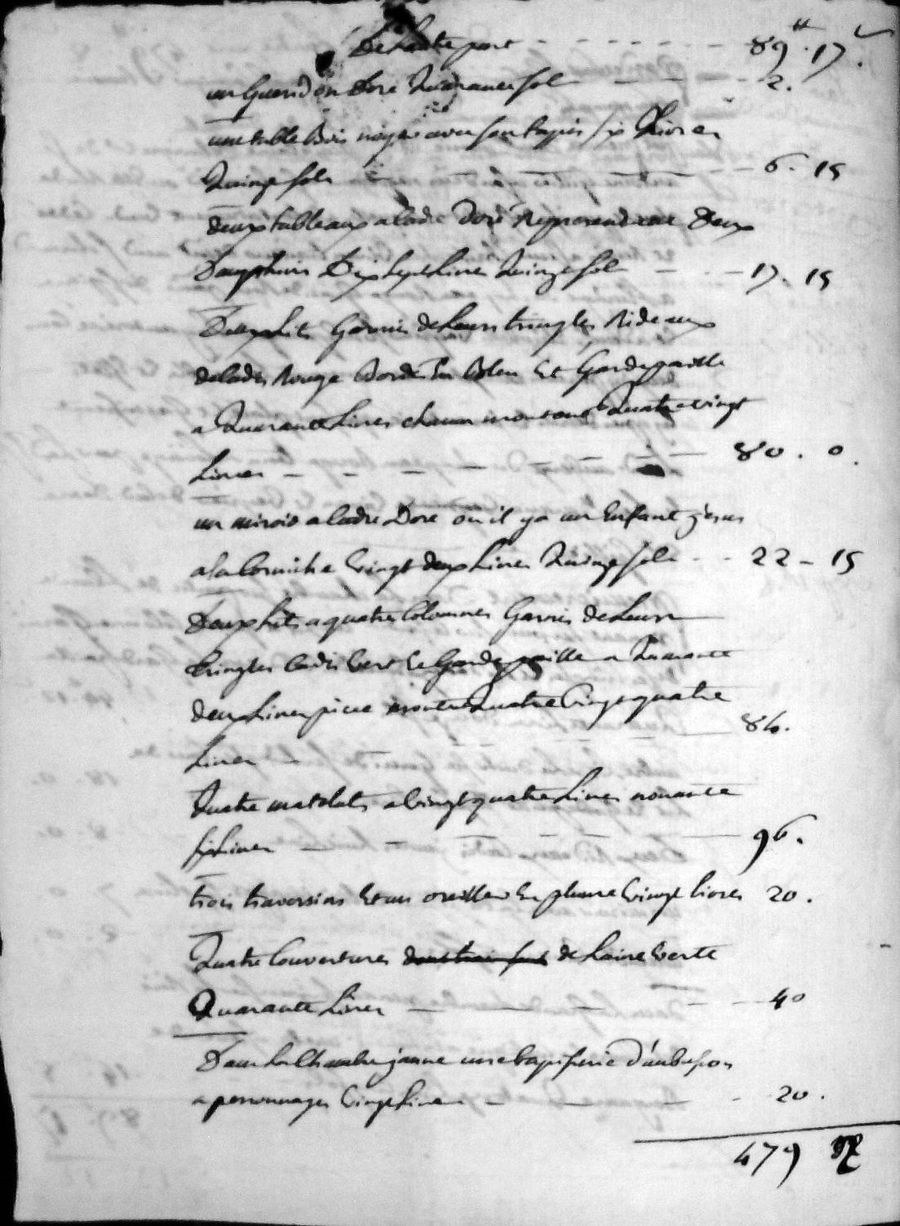 De Lautre part - - - - - - - 89 ₶. 17 s.
un Gueridon Doré Quarante sol - - - 2.
une table Bois noyer avec son tapis six Livres
Quinze sols - - - - - 6. 15
deux tableaux a Cadre Doré Representant Deux
Dauphins Dix sept Livres Quinze sols - - - 17. 15
Deux Lits Garnis de Leurs tringles Rideaux
de Cadis Rouge Bordé En Bleu Et Gardepaille
a Quarante Livres chacun montant Quatre vingt
Livres - - - - - - 80. 0.
un miroir a Cadre Doré ou il y a un Enfant Jesus
a la Corniche vingt deux Livres Quinze sols - - 22 - 15
Deux Lits a quatre Colonnes Garnis de Leurs
tringles Cadis vert Et Gardepaille a Quarante
deux Livres piece montent Quatre vingt quatre
Livres - - - - - 84.
Quatre matelats a vingt quatre Livres nonante
six Livres - - - - 96.
trois traversins Et un oreiller En plume vingt livres 20.
Quatre Couvertures de Laine verte
Quarante Livres - - - - 40
Dans la Chambre jaune une tapisserie d'aubusson
a personnages vingt Livres - - - 20.
479